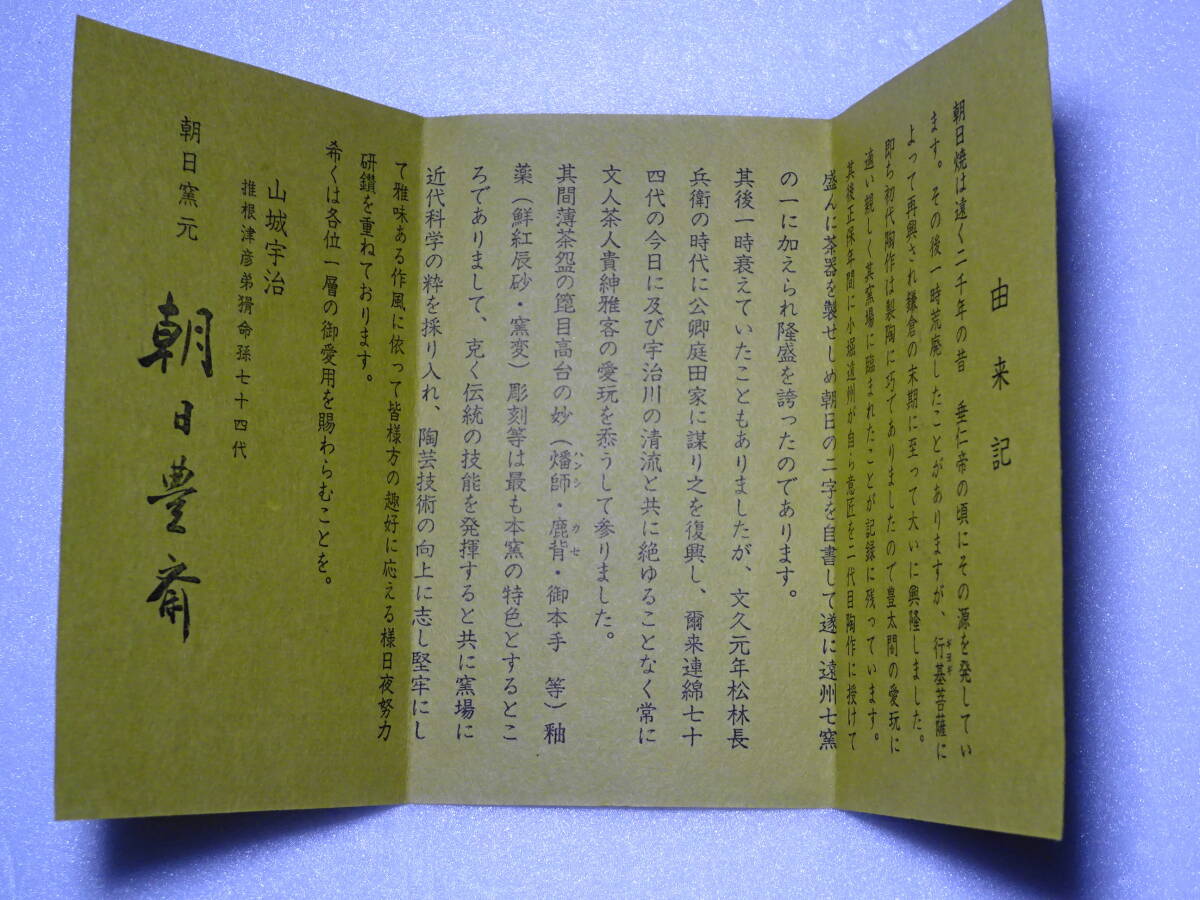 由来記
朝日焼は遠く二千年の昔　垂仁帝の頃にその源を発してい
ます。その後一時荒廃したことがありますが、行基菩薩に
ギヨギ
よって再興され鎌倉の末期に至って大いに興隆しました。
即ち初代陶作は製陶に巧でありましたので豊太閤の愛玩に
遠い親しく其窯場に臨まれたことが記録に残っています。
其後正保年間に小堀遠州が自ら意匠を二代目陶作に授けて
盛んに茶器を製せしめ朝日の二字を自書して遂に遠州七窯
の一に加えられ隆盛を誇ったのであります。
其後一時衰えていたこともありましたが、文久元年松林長
兵衛の時代に公卿庭田家に謀り之を復興し、爾来連綿七十
四代の今日に及び宇治川の清流と共に絶ゆることなく常に
文人茶人貴紳雅客の愛玩を忝うして参りました。
其間薄茶盌の箆目高台の妙（燔師・鹿背・御本手　等）釉
ハンシ　カセ
薬（鮮紅辰砂・窯変）彫刻等は最も本窯の特色とするとこ
ろでありまして、克く伝統の技能を発揮すると共に窯場に
近代科学の粋を採り入れ、陶芸技術の向上に志し堅牢にし
て雅味ある作風に依って皆様方の趣好に応える様日夜努力
研鑽を重ねております。
希くは各位一層の御愛用を賜わらむことを。
山城宇治
推根津彦弟猾命孫七十四代
朝日窯元　朝日豊斎